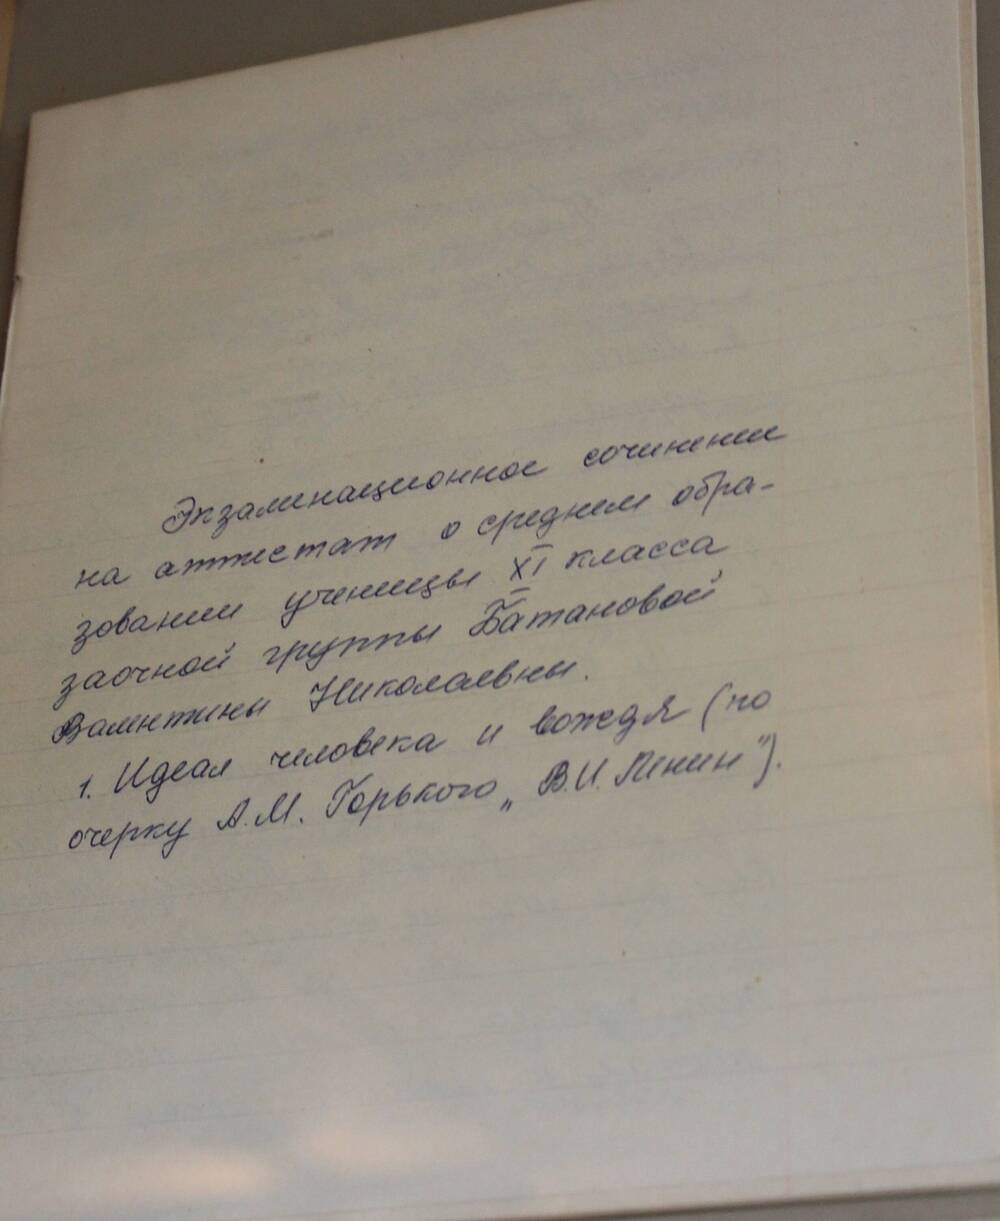 Экзаменационное сочинение
на аттестат о среднем обра-
зовании ученицы XI класса
заочной группы Батановой
Валентины Николаевны.
1. Идеал человека и вождя (по
очерку А.М. Горького „В.И. Ленин").